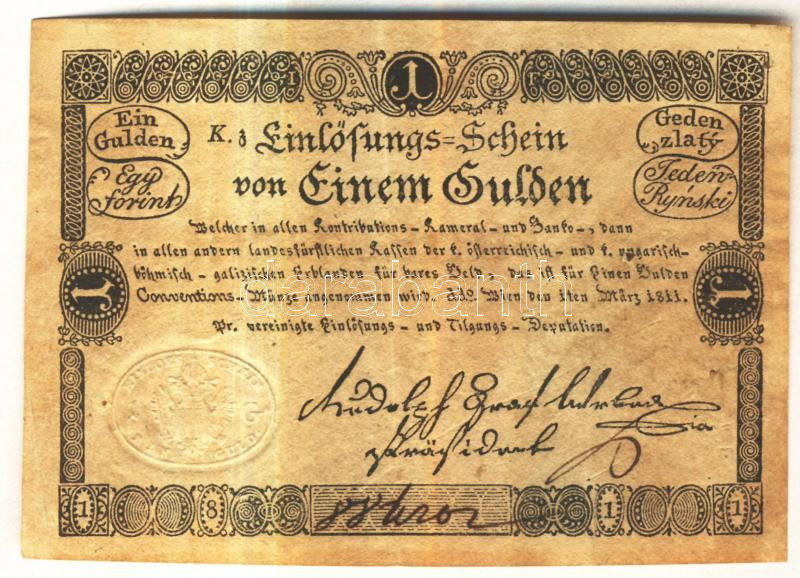 1
I F
Ein
Gulden
Egy
forint
K. z Einlösungs=Schein
von Einem Gulden
Geden
zlatý
Jeden
Ryński
Welcher in allen Kontributions-, Kameral- und Banko-, dann
in allen andern landesfürstlichen Kassen der k. österreichisch- und k. ungarisch-
böhmisch-galizischen Erblanden für bares Geld, das ist für Einen Gulden
Conventions-Münze angenommen wird. ddo. Wien den 1ten März 1811.
Pr. vereinigte Einlösungs- und Tilgungs-Deputation.
1
1
darabanth
Rudolph Graf
Präsident
1 8 1 1